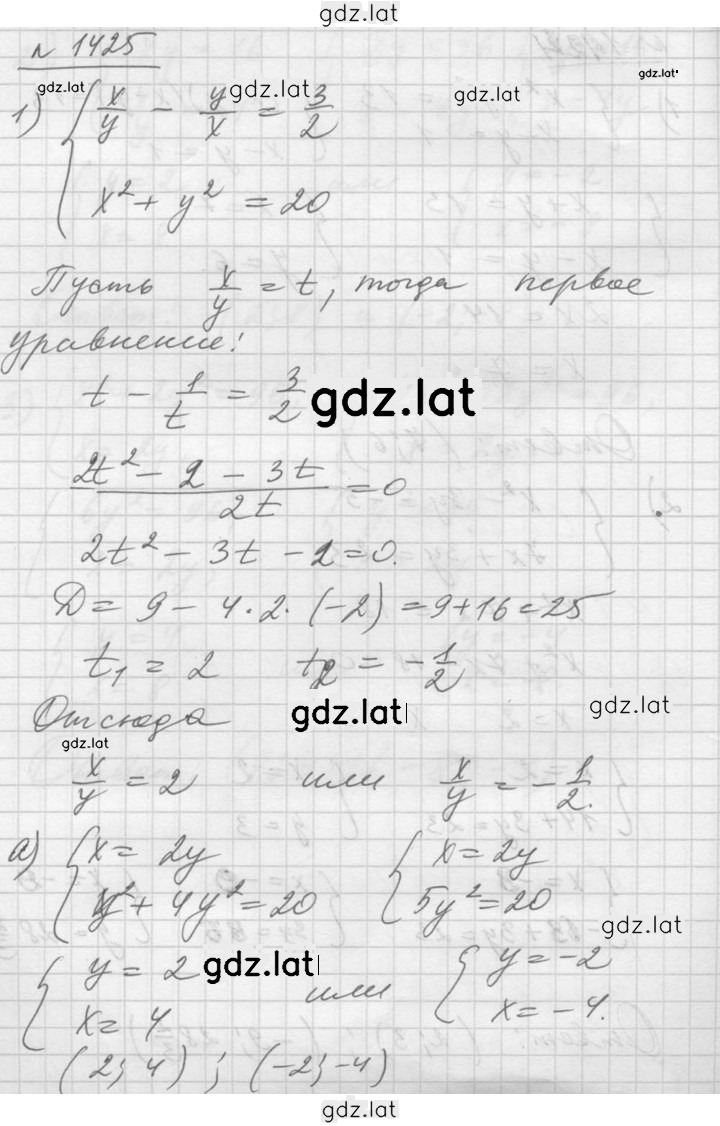 gdz.lat
№ 1425
gdz.lat gdz.lat gdz.lat gdz.lat
1) { x/y - y/x = 3/2
x² + y² = 20
Пусть x/y = t, тогда первое
уравнение:
t - 1/t = 3/2 gdz.lat
(2t² - 2 - 3t)/2t = 0
2t² - 3t - 2 = 0.
D = 9 - 4·2·(-2) = 9 + 16 = 25
t₁ = 2 t₂ = -1/2
Отсюда gdz.lat gdz.lat
gdz.lat
x/y = 2 или x/y = -1/2.
а) { x = 2y { x = 2y
y² + 4y² = 20 5y² = 20
gdz.lat
{ y = 2 gdz.lat или { y = -2
x = 4 x = -4.
(2; 4) ; (-2; -4)
gdz.lat